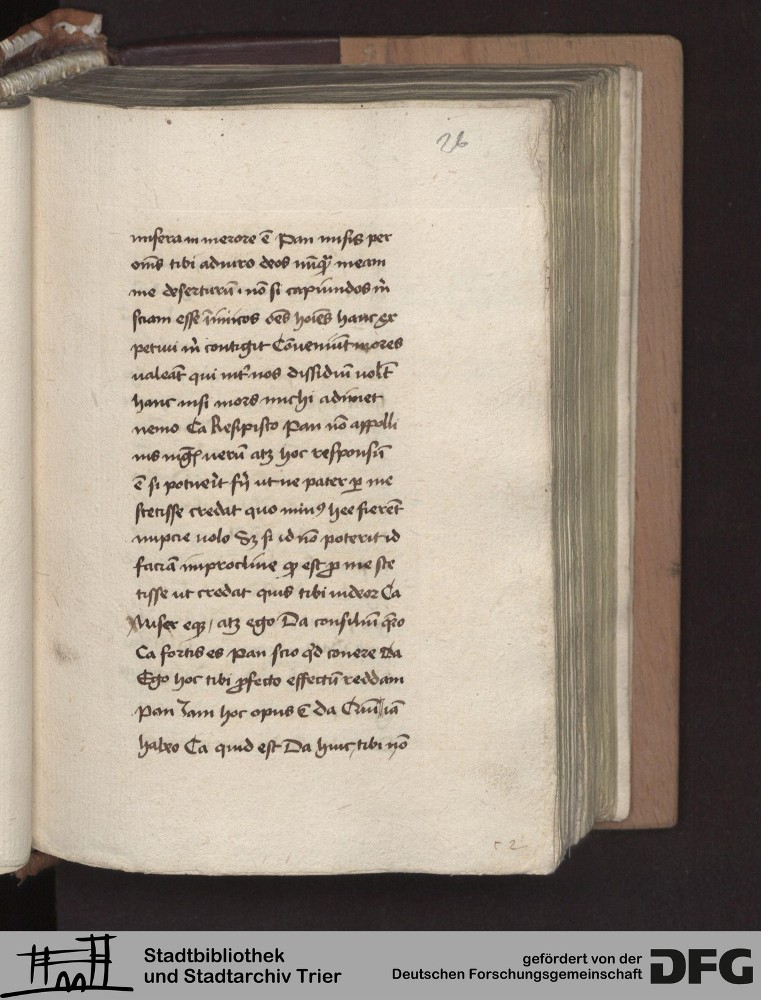 26
misera in merore ē Pan missis per
om̄s tibi adiuro deos nūq̄ȝ meam
me deserturū nō si capiundos m̄
sciam esse īimicos oēs hoīes hanc ex
petiui m̄ contigit Cōueniūt mores
ualeāt qui int̄ nos dissidiū uolt̄
hanc nisi mors michi adimet
nemo Ca Resipisco Pan nō appolli
nis mḡ uerū atꝫ hoc responsū
ē si potuer̄t fi̅ ut ne pater ꝑ me
stetisse credat quo minꝰ hee fierēt
nupcie uolo Sꝫ si id nō poterit id
faciā in procliue qꝫ est ꝑ me ste
tisse ut credat quis tibi uideor Ca
Miser eqꝫ atꝫ ego Da consiliū q̄ro
Ca fortis es Pan scio qͩd conere Da
Ego hoc tibi ꝓfecto effectū reddam
Pan Jam hoc opus ē da iā
habeo Ca quid est Da huic tibi nō
Stadtbibliothek
und Stadtarchiv Trier
gefördert von der
Deutschen Forschungsgemeinschaft
DFG